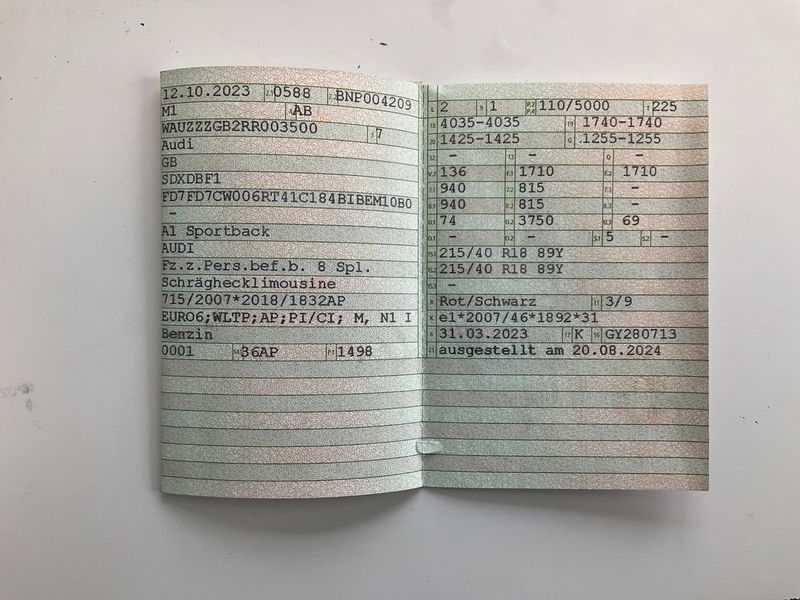 12.10.2023 0588 BNP004209
M1 AB
WAUZZZGB2RR003500 7
Audi
GB
SDXDBF1
FD7FD7CW006RT41C184BIBEM10B0
-
A1 Sportback
AUDI
Fz.z.Pers.bef.b. 8 Spl.
Schräghecklimousine
715/2007*2018/1832AP
EURO6;WLTP;AP;PI/CI; M, N1 I
Benzin
0001 36AP P.1 1498
L 2 9 1 110/5000 T 225
18 4035-4035 19 1740-1740
20 1425-1425 G 1255-1255
12 - 13 - Q -
V.7 136 F.1 1710 F.2 1710
7.1 940 7.2 815 7.3 -
8.1 940 8.2 815 8.3 -
U.1 74 U.2 3750 U.3 69
O.1 - O.2 - S.1 5 S.2 -
15.1 215/40 R18 89Y
15.2 215/40 R18 89Y
15.3 -
R Rot/Schwarz 11 3/9
K e1*2007/46*1892*31
6 31.03.2023 17 K 16 GY280713
21 ausgestellt am 20.08.2024